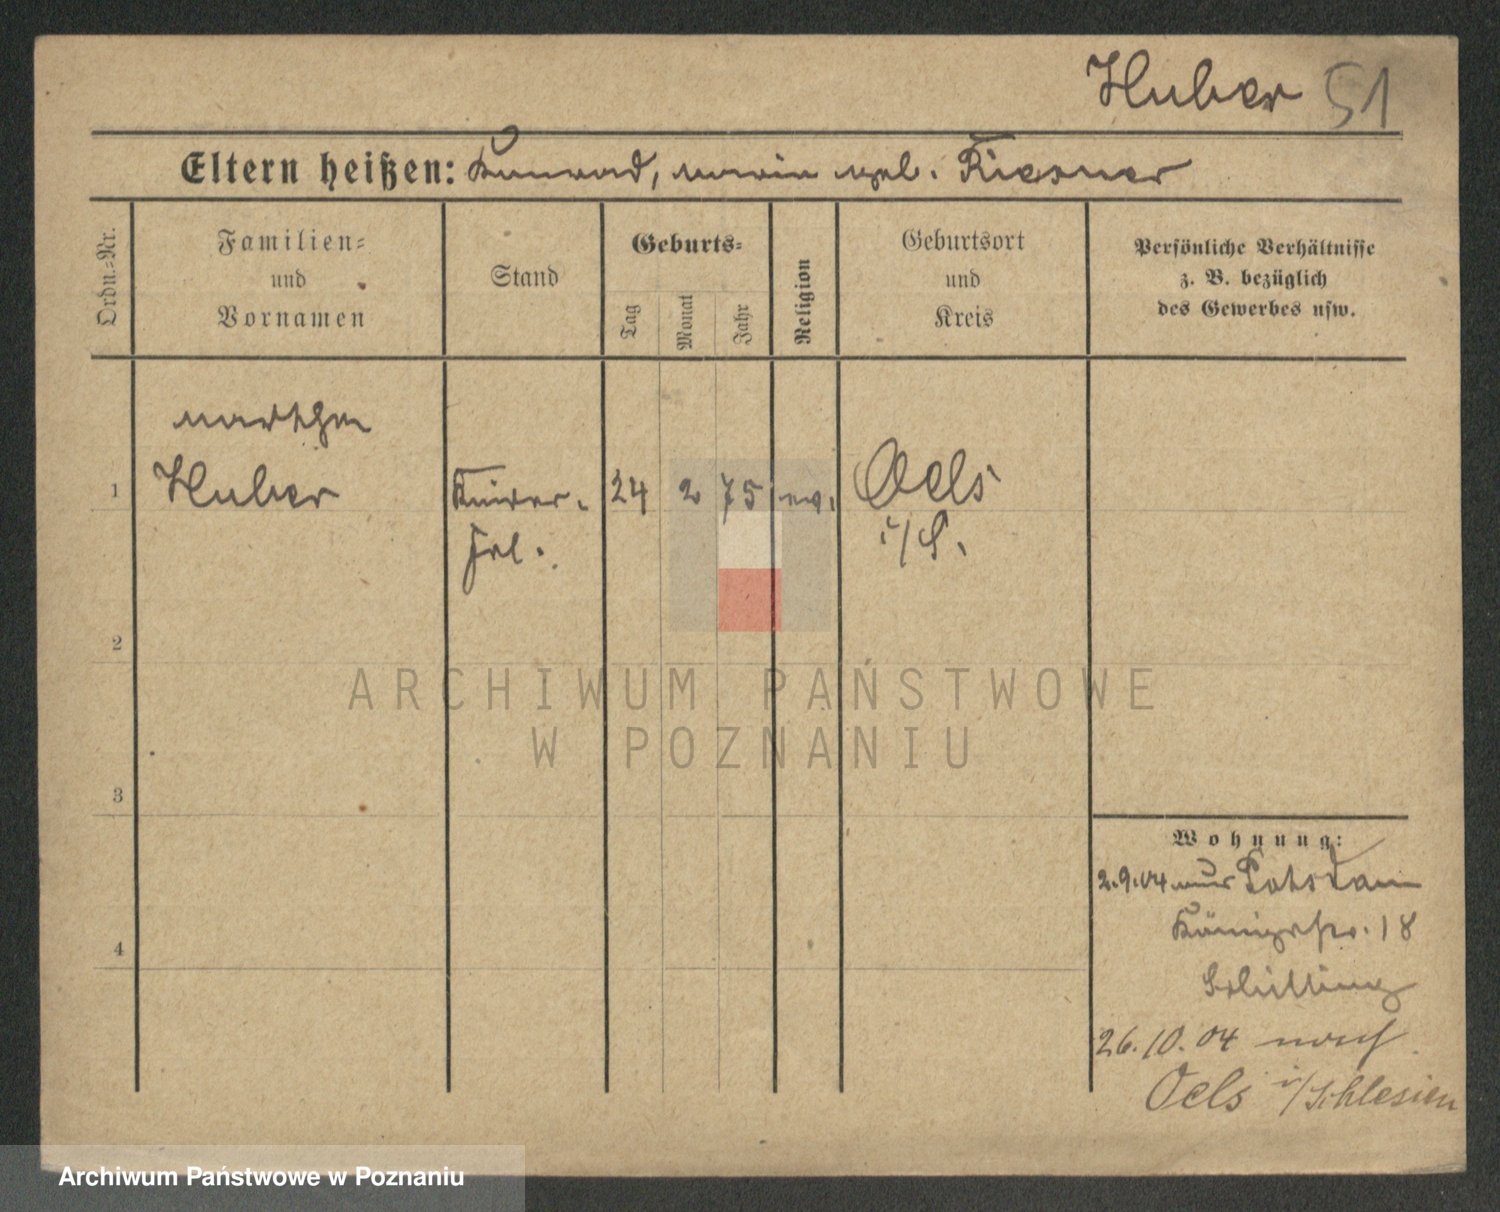 Huber 51
Eltern heißen: Konrad, Marie geb. Kiesner
Ordn.-Nr.
Familien-
und
Vornamen
Stand
Geburts-
Tag
Monat
Jahr
Religion
Geburtsort
und
Kreis
Persönliche Verhältnisse
z. B. bezüglich
des Gewerbes usw.
1
Martha
Huber
Kinder-
frl.
24 2 75 ev.
Oels
i/S.
2
3
4
Wohnung:
2.9.04 aus Potsdam
Königstr. 18
Schilling
26.10.04 nach
Oels i/Schlesien
ARCHIWUM PAŃSTWOWE
W POZNANIU
Archiwum Państwowe w Poznaniu